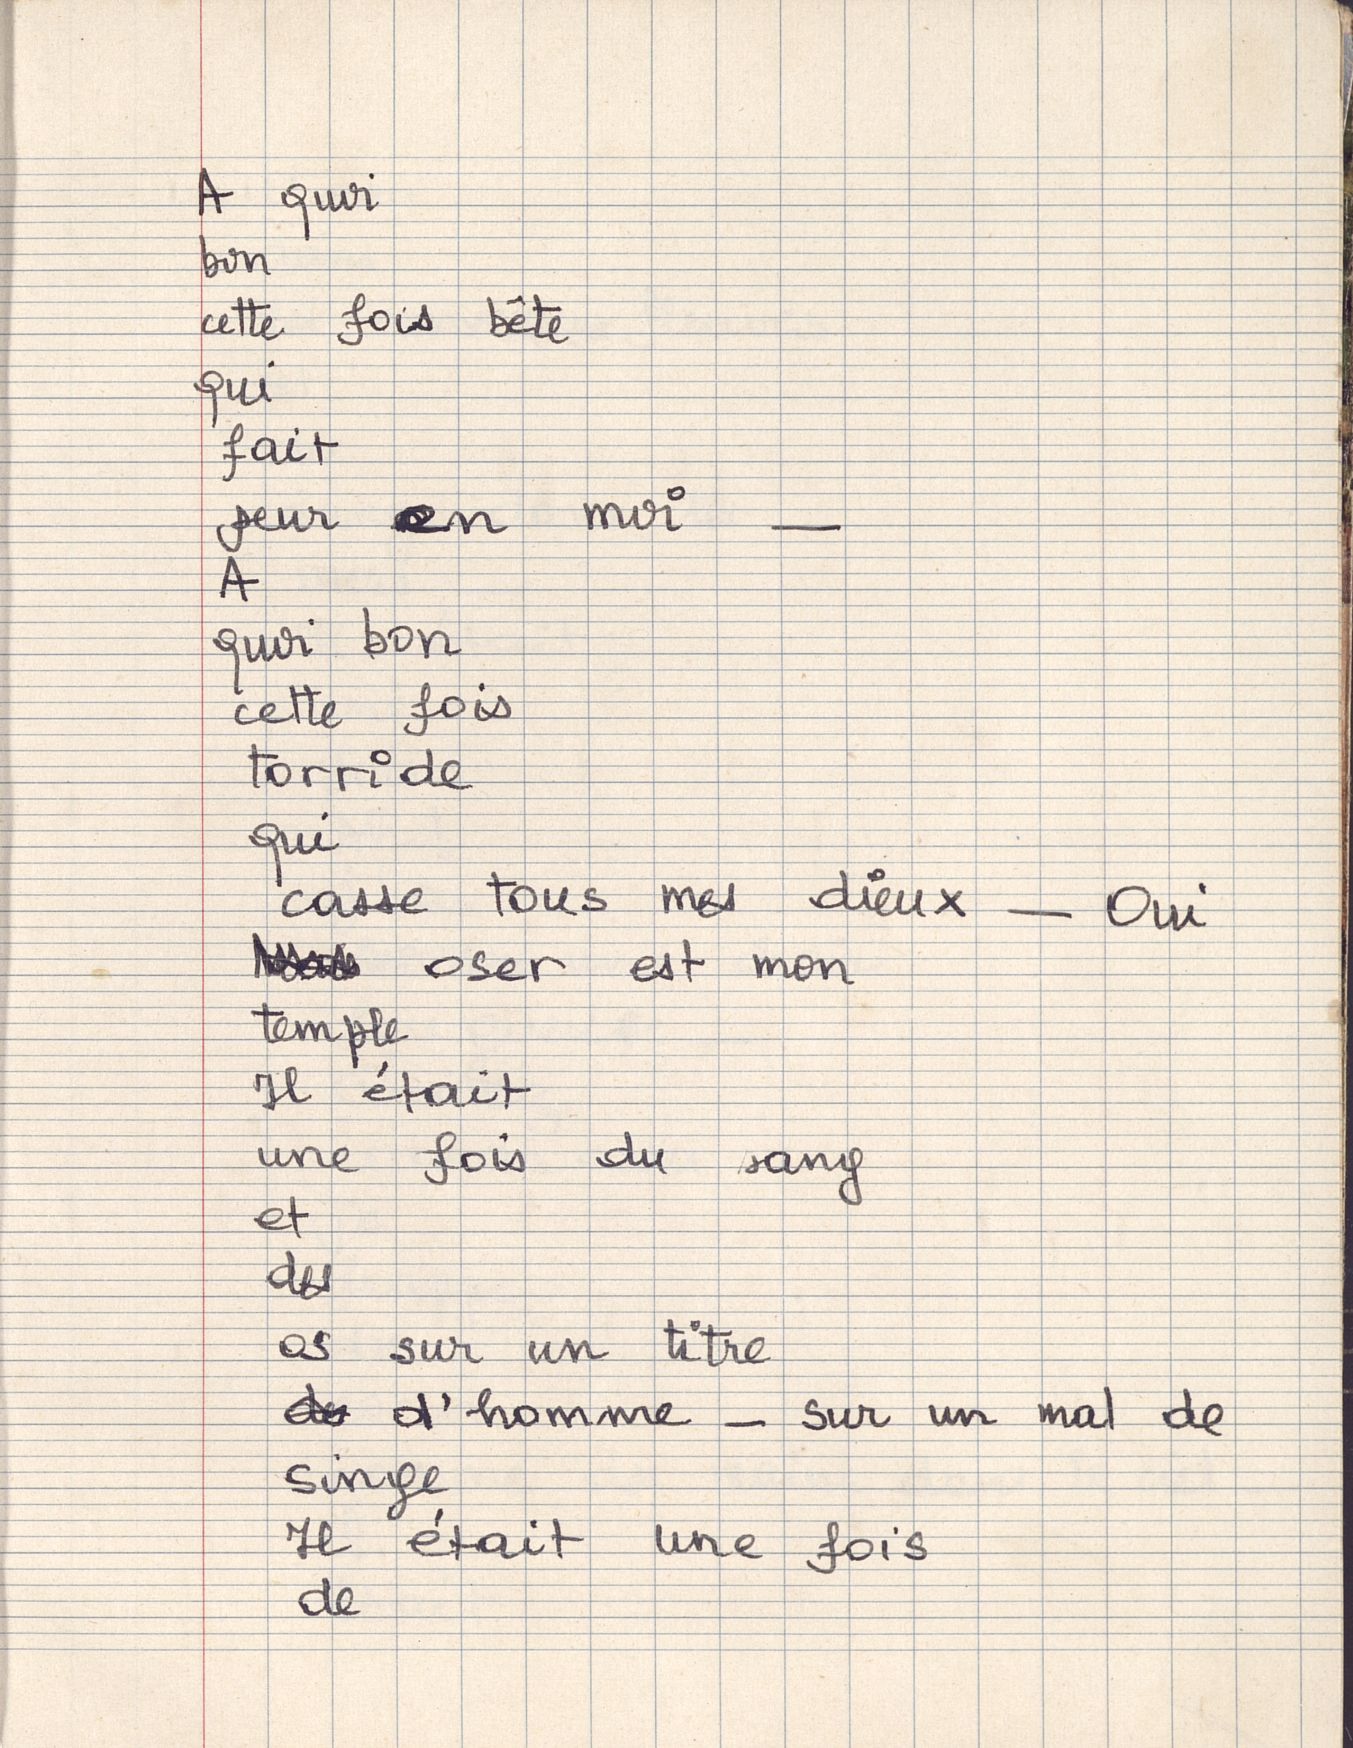 A quoi
bon
cette fois bête
qui
fait
peur en moi —
A
quoi bon
cette fois
torride
qui
casse tous mes dieux — Oui
oser est mon
temple
Il était
une fois du sang
et
des
os sur un titre
d'homme — sur un mal de
singe
Il était une fois
de